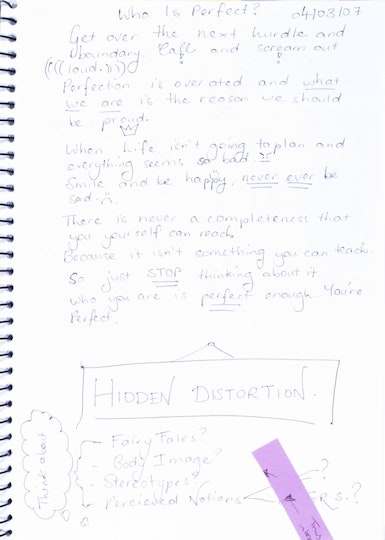 Who Is Perfect? 04/03/07
Get over the next hurdle and
boundary. Call and scream out
(((loud.)))
Perfection is overated and what
we are is the reason we should
be proud.
When life isn't going to plan and
everything seems so bad.
Smile and be happy, never ever be
sad.
There is never a completeness that
you yourself can reach
Because it isn't something you can teach.
So just STOP thinking about it.
Who you are is perfect enough. You're
Perfect.
HIDDEN DISTORTION.
Think about
- Fairy Tales?
- Body Image?
- Stereotypes?
- Percieved Notions
?
ERS.?